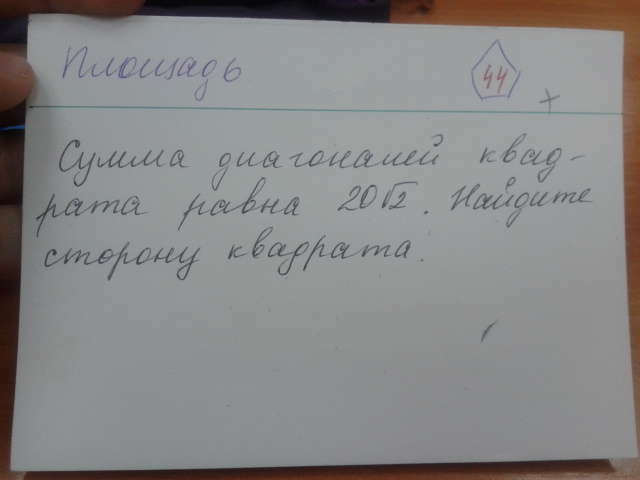 Площадь
44
+
Сумма диагоналей квад-
рата равна 20√2. Найдите
сторону квадрата.